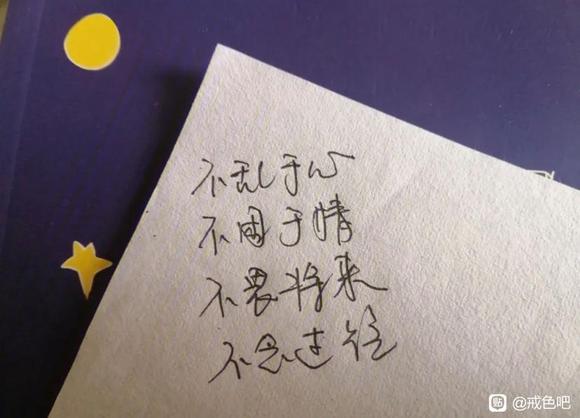 不乱于心
不困于情
不畏将来
不念过往
贴 @戒色吧